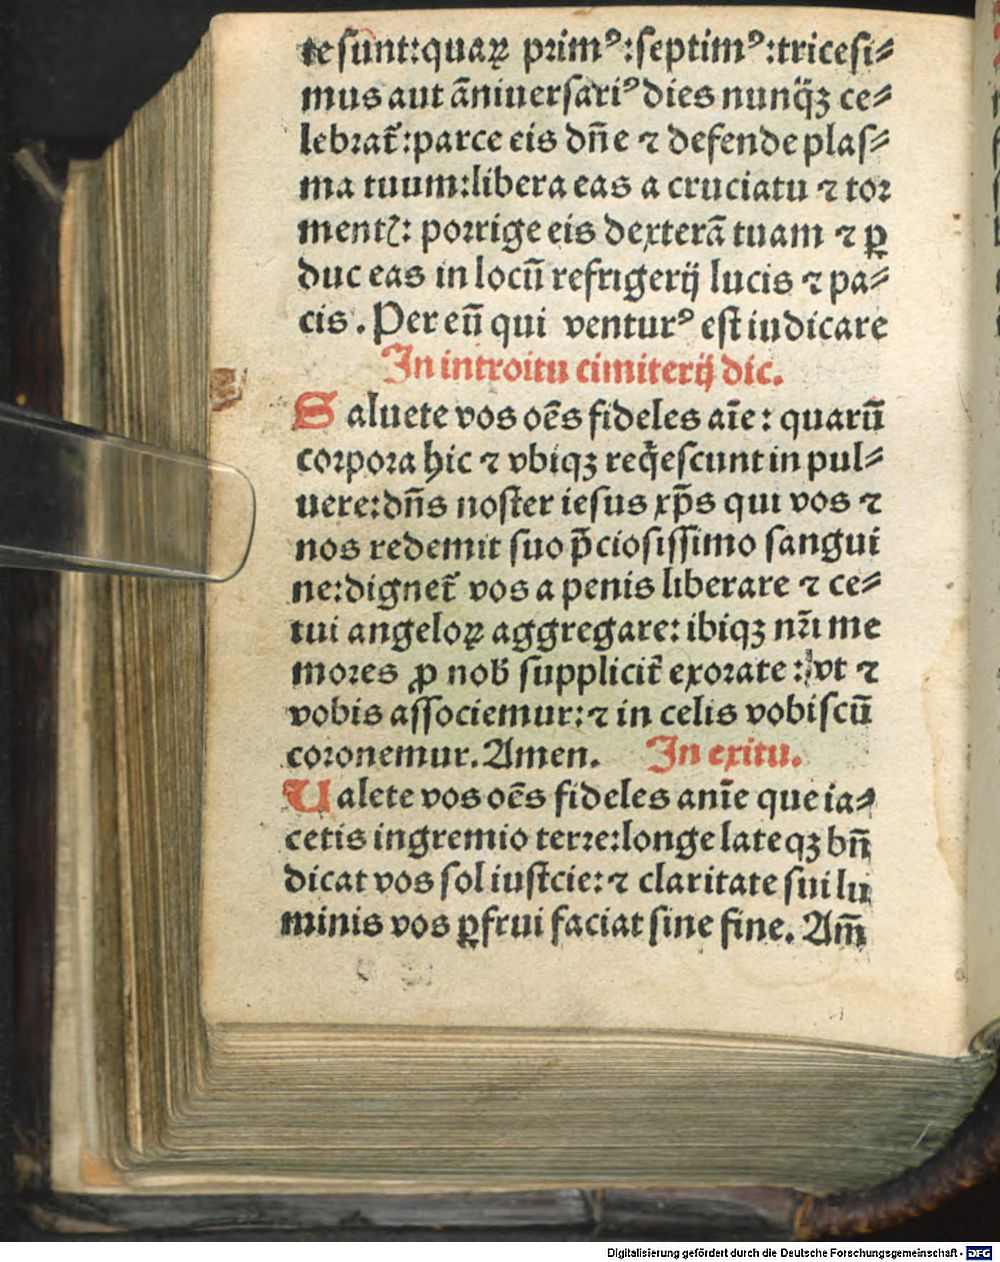 te sunt: quaꝝ primꝰ: septimꝰ: tricesi⸗
mus aut ãniuersariꝰ dies nunq̃ꝫ ce⸗
lebrat̃: parce eis dñe ⁊ defende plas⸗
ma tuum: libera eas a cruciatu ⁊ tor
ment: porrige eis dexterã tuam ⁊ ꝑ
duc eas in locũ refrigerij lucis ⁊ pa⸗
cis. Per eũ qui venturꝰ est iudicare
In introitu cimiterij dic.
Saluete vos oẽs fideles aĩe: quarũ
corpora hic ⁊ vbiqꝫ req̃escunt in pul⸗
uere: dñs noster iesus xp̃s qui vos ⁊
nos redemit suo p̃ciosissimo sangui
ne: dignet̃ vos a penis liberare ⁊ ce⸗
tui angeloꝝ aggregare: ibiqꝫ nr̃i me
mores ꝓ nob̃ supplicit̃ exorate: vt ⁊
vobis associemur: ⁊ in celis vobiscũ
coronemur. Amen. In exitu.
Ualete vos oẽs fideles anĩe que ia⸗
cetis in gremio terre: longe lateqꝫ bñ
dicat vos sol iusticie: ⁊ claritate sui lu
minis vos ꝑfrui faciat sine fine. Am̃
Digitalisierung gefördert durch die Deutsche Forschungsgemeinschaft - DFG